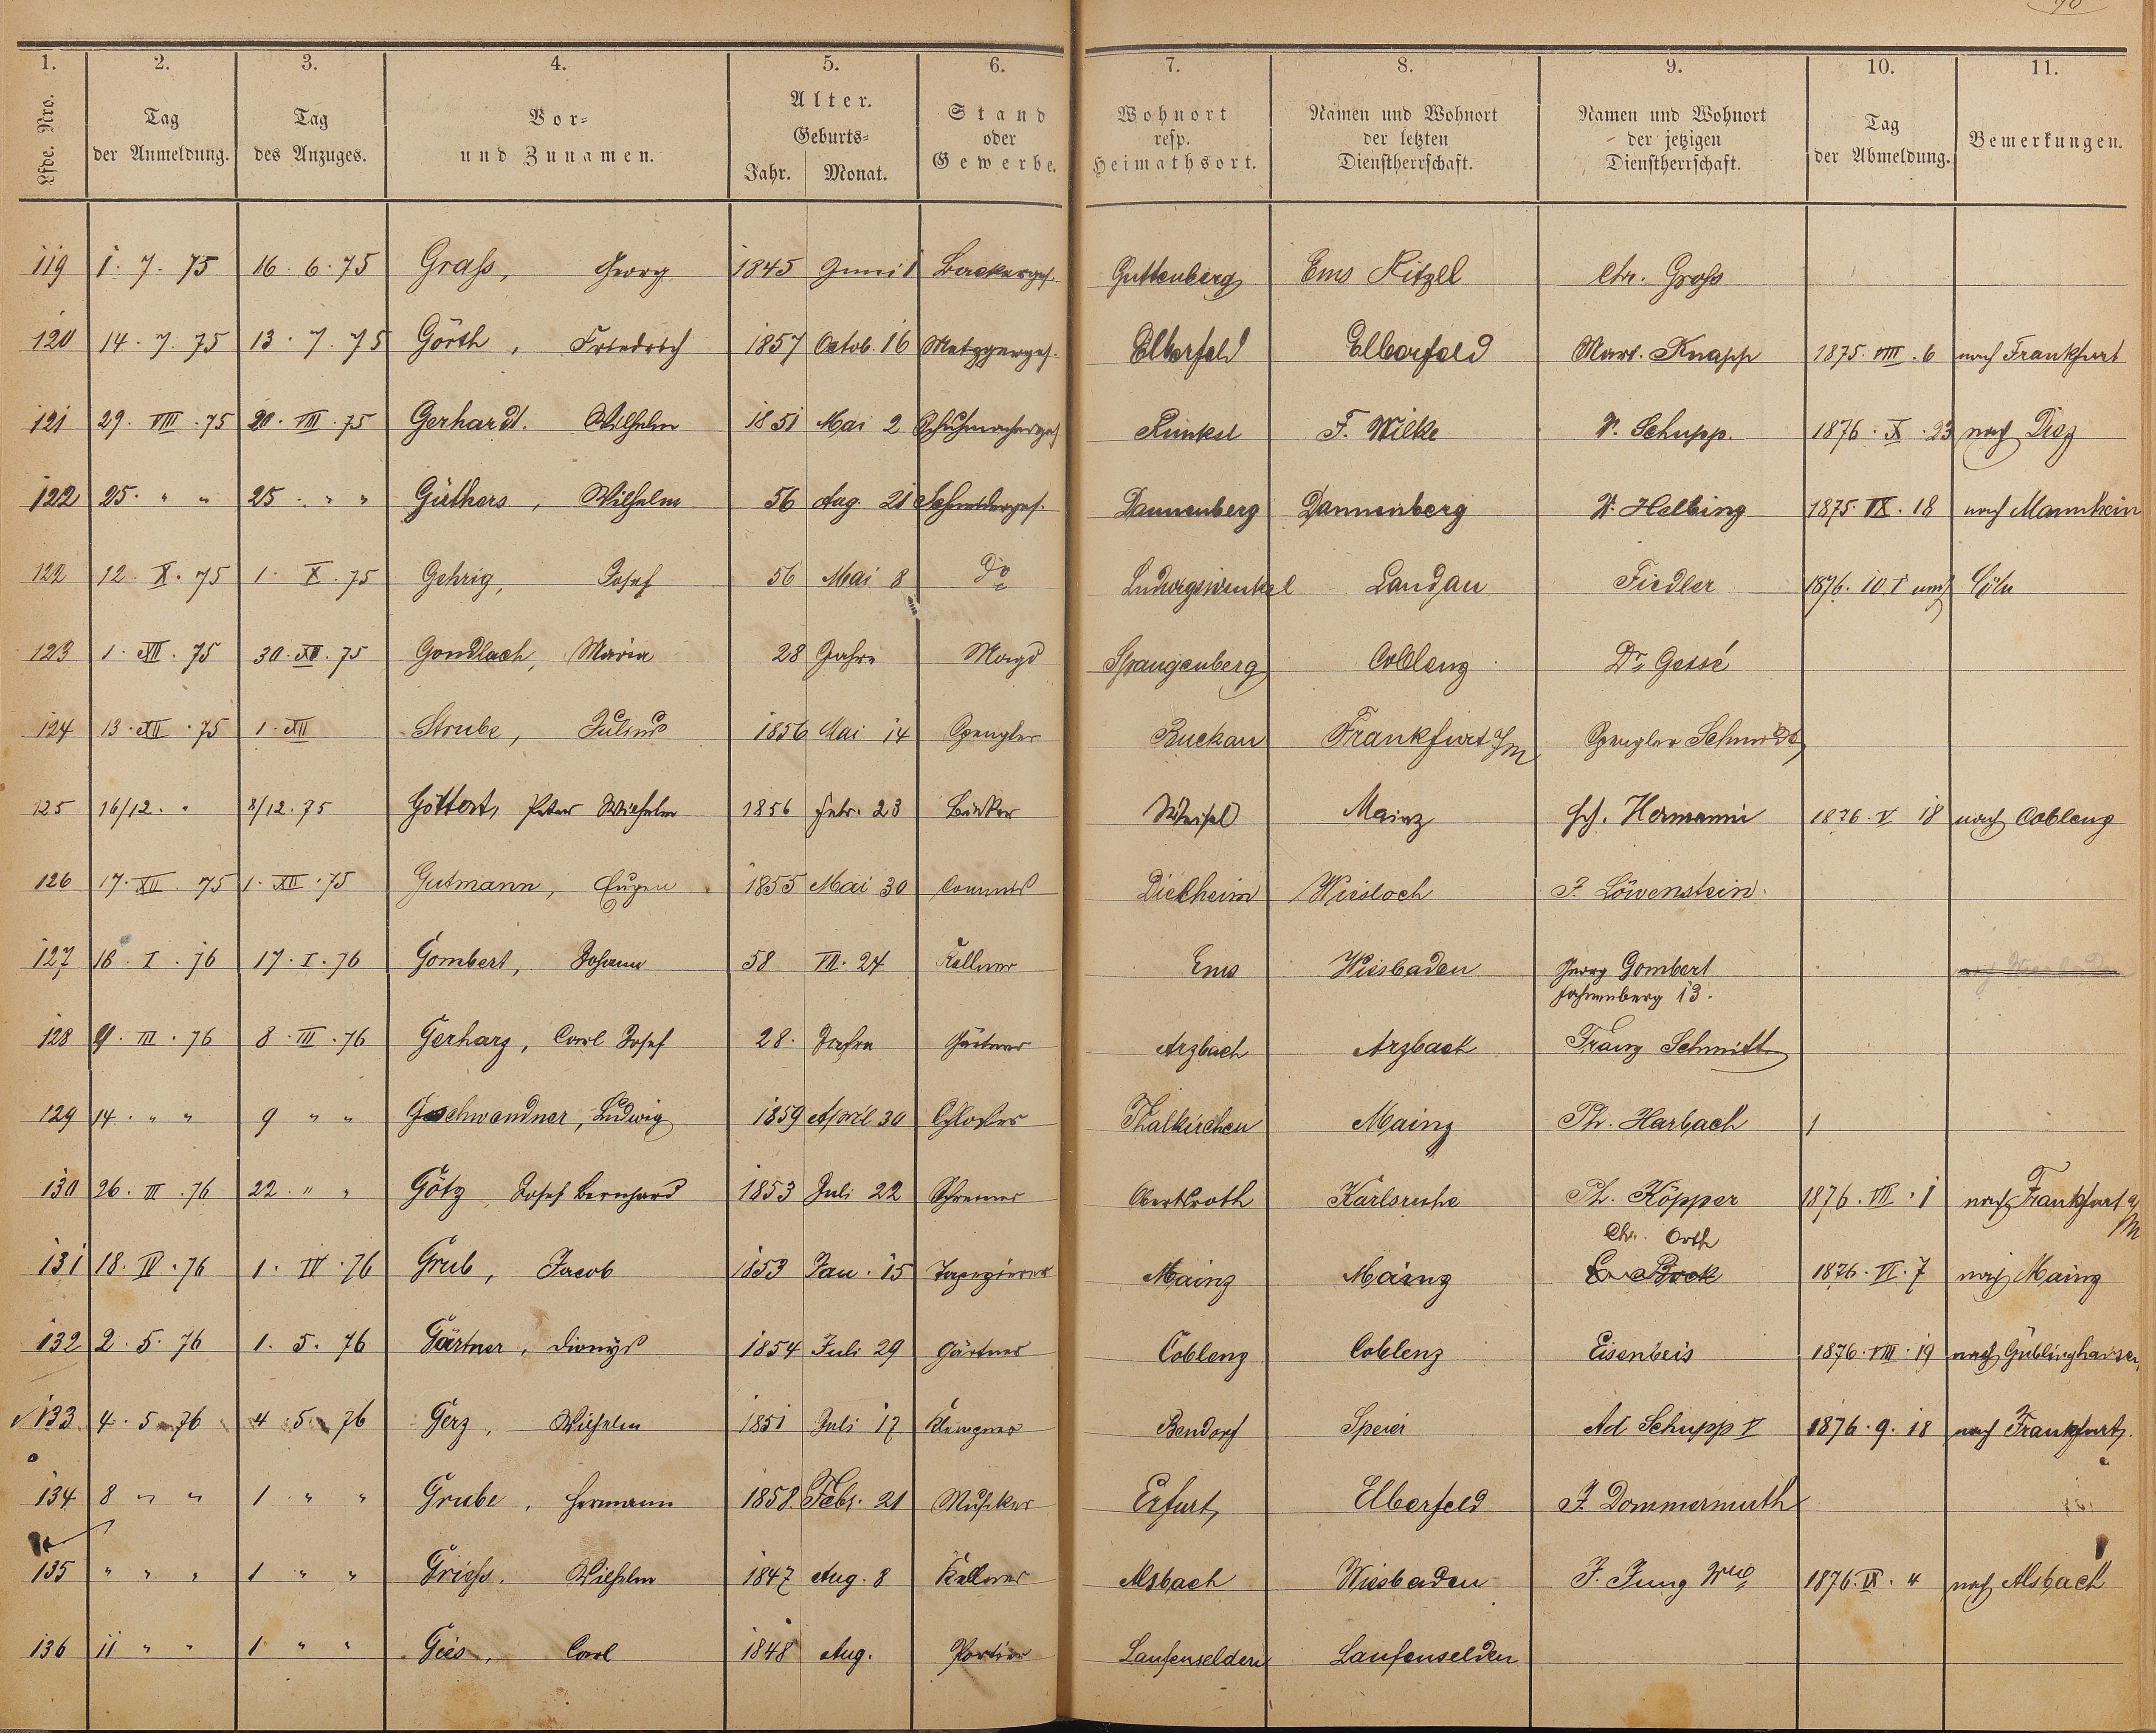 1. 2. 3. 4. 5. 6. 7. 8. 9. 10. 11.
Lfde. Nro. Tag der Anmeldung. Tag des Anzuges. Vor- und Zunamen. Alter. Geburts- Jahr. Monat. Stand oder Gewerbe. Wohnort resp. Heimathsort. Namen und Wohnort der letzten Dienstherrschaft. Namen und Wohnort der jetzigen Dienstherrschaft. Tag der Abmeldung. Bemerkungen.
119 1. 7. 75 16. 6. 75 Graß, Georg 1845 Juni 1 Backerges. Guttenberg Ems Ritzel Chr. Groß
120 14. 7. 75 13. 7. 75 Görth, Friedrich 1857 Octob. 16 Metzgerges. Elberfeld Elberfeld Mart. Knapp 1875. VIII. 6 nach Frankfurt
121 29. VIII. 75 20. VIII. 75 Gerhardt. Wilhelm 1851 Mai 2 Schuhmacherges Runkel F. Wilke W. Schupp. 1876. X. 23 nach Diez
122 25. " " 25. " " Güthers, Wilhelm 56 Aug 21 Schneiderges. Dannenberg Dannenberg W. Helbing 1875. IX. 18 nach Mannheim
122 12. X. 75 1. X. 75 Gehrig, Josef 56 Mai 8 Do Ludwigswinkel Landau Fiedler 1876. 10. I nach Cöln
123 1. XII. 75 30. XI. 75 Gondlach, Maria 28 Jahre Magd Spangenberg Coblenz Dr. Gessé
124 13. XII. 75 1. XII Strube, Julius 1856 Mai 14 Spengler Buckau Frankfurt a/m Spengler Schmidt
125 16/12. " 8/12. 75 Göttert, Peter Wilhelm 1856 Febr. 23 Bäcker Weisel Mainz Hch. Hermanni 1876. V 18 nach Coblenz
126 17. XII. 75 1. XII. 75 Gutmann, Eugen 1855 Mai 30 Commis Dielheim Wiesloch J. Löwenstein.
127 18. I. 76 17. I. 76 Gombert, Johann 58 VII. 24 Kellner Ems Wiesbaden Georg Gombert nach Wiesbaden
Fahnenberg 13.
128 9. III. 76 8. III. 76 Gerharz, Carl Josef 28. Jahre Gärtner Arzbach Arzbach Franz Schmitt
129 14. " " 9 " " Geschwandner, Ludwig 1859 April 30 Schlosser Thalkirchen Mainz Ph. Harbach 1
130 26. III. 76 22. " " Götz, Josef Bernhard 1853 Juli 22 Schreiner Obertsroth Karlsruhe Ph. Köpper 1876. VII. 1 nach Frankfurt a/M
Chr. Orth
131 18. IV. 76 1. IV. 76 Grub, Jacob 1853 Jan. 15 Tapezierer Mainz Mainz Bock 1876. VI. 7 nach Mainz
132 2. 5. 76 1. 5. 76 Gärtner, Dionys 1854 Juli 29 Gärtner Coblenz Coblenz Eisenbeis 1876. VIII. 19 nach Güblinghausen
133 4. 5 76 4. 5 76 Gerz, Wilhelm 1851 Juli 17 Klempner Bendorf Speier Ad Schupp V 1876. 9. 18 nach Frankfurt.
134 8 " " 1 " " Grube, Hermann 1858. Febr. 21 Musiker Erfurt, Elberfeld J. Dommermuth
135 " " " 1 " " Grieß. Wilhelm 1847 Aug. 8 Kellner Alsbach Wiesbaden J. Jung Wwe 1876. IX. 4 nach Alsbach
136 11 " " 1 " " Gies, Carl 1848 Aug. Portier Laufenselden Laufenselden